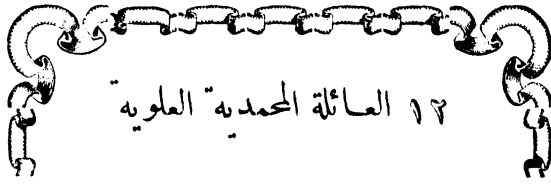 ١٢ العائلة المحمدية العلوية